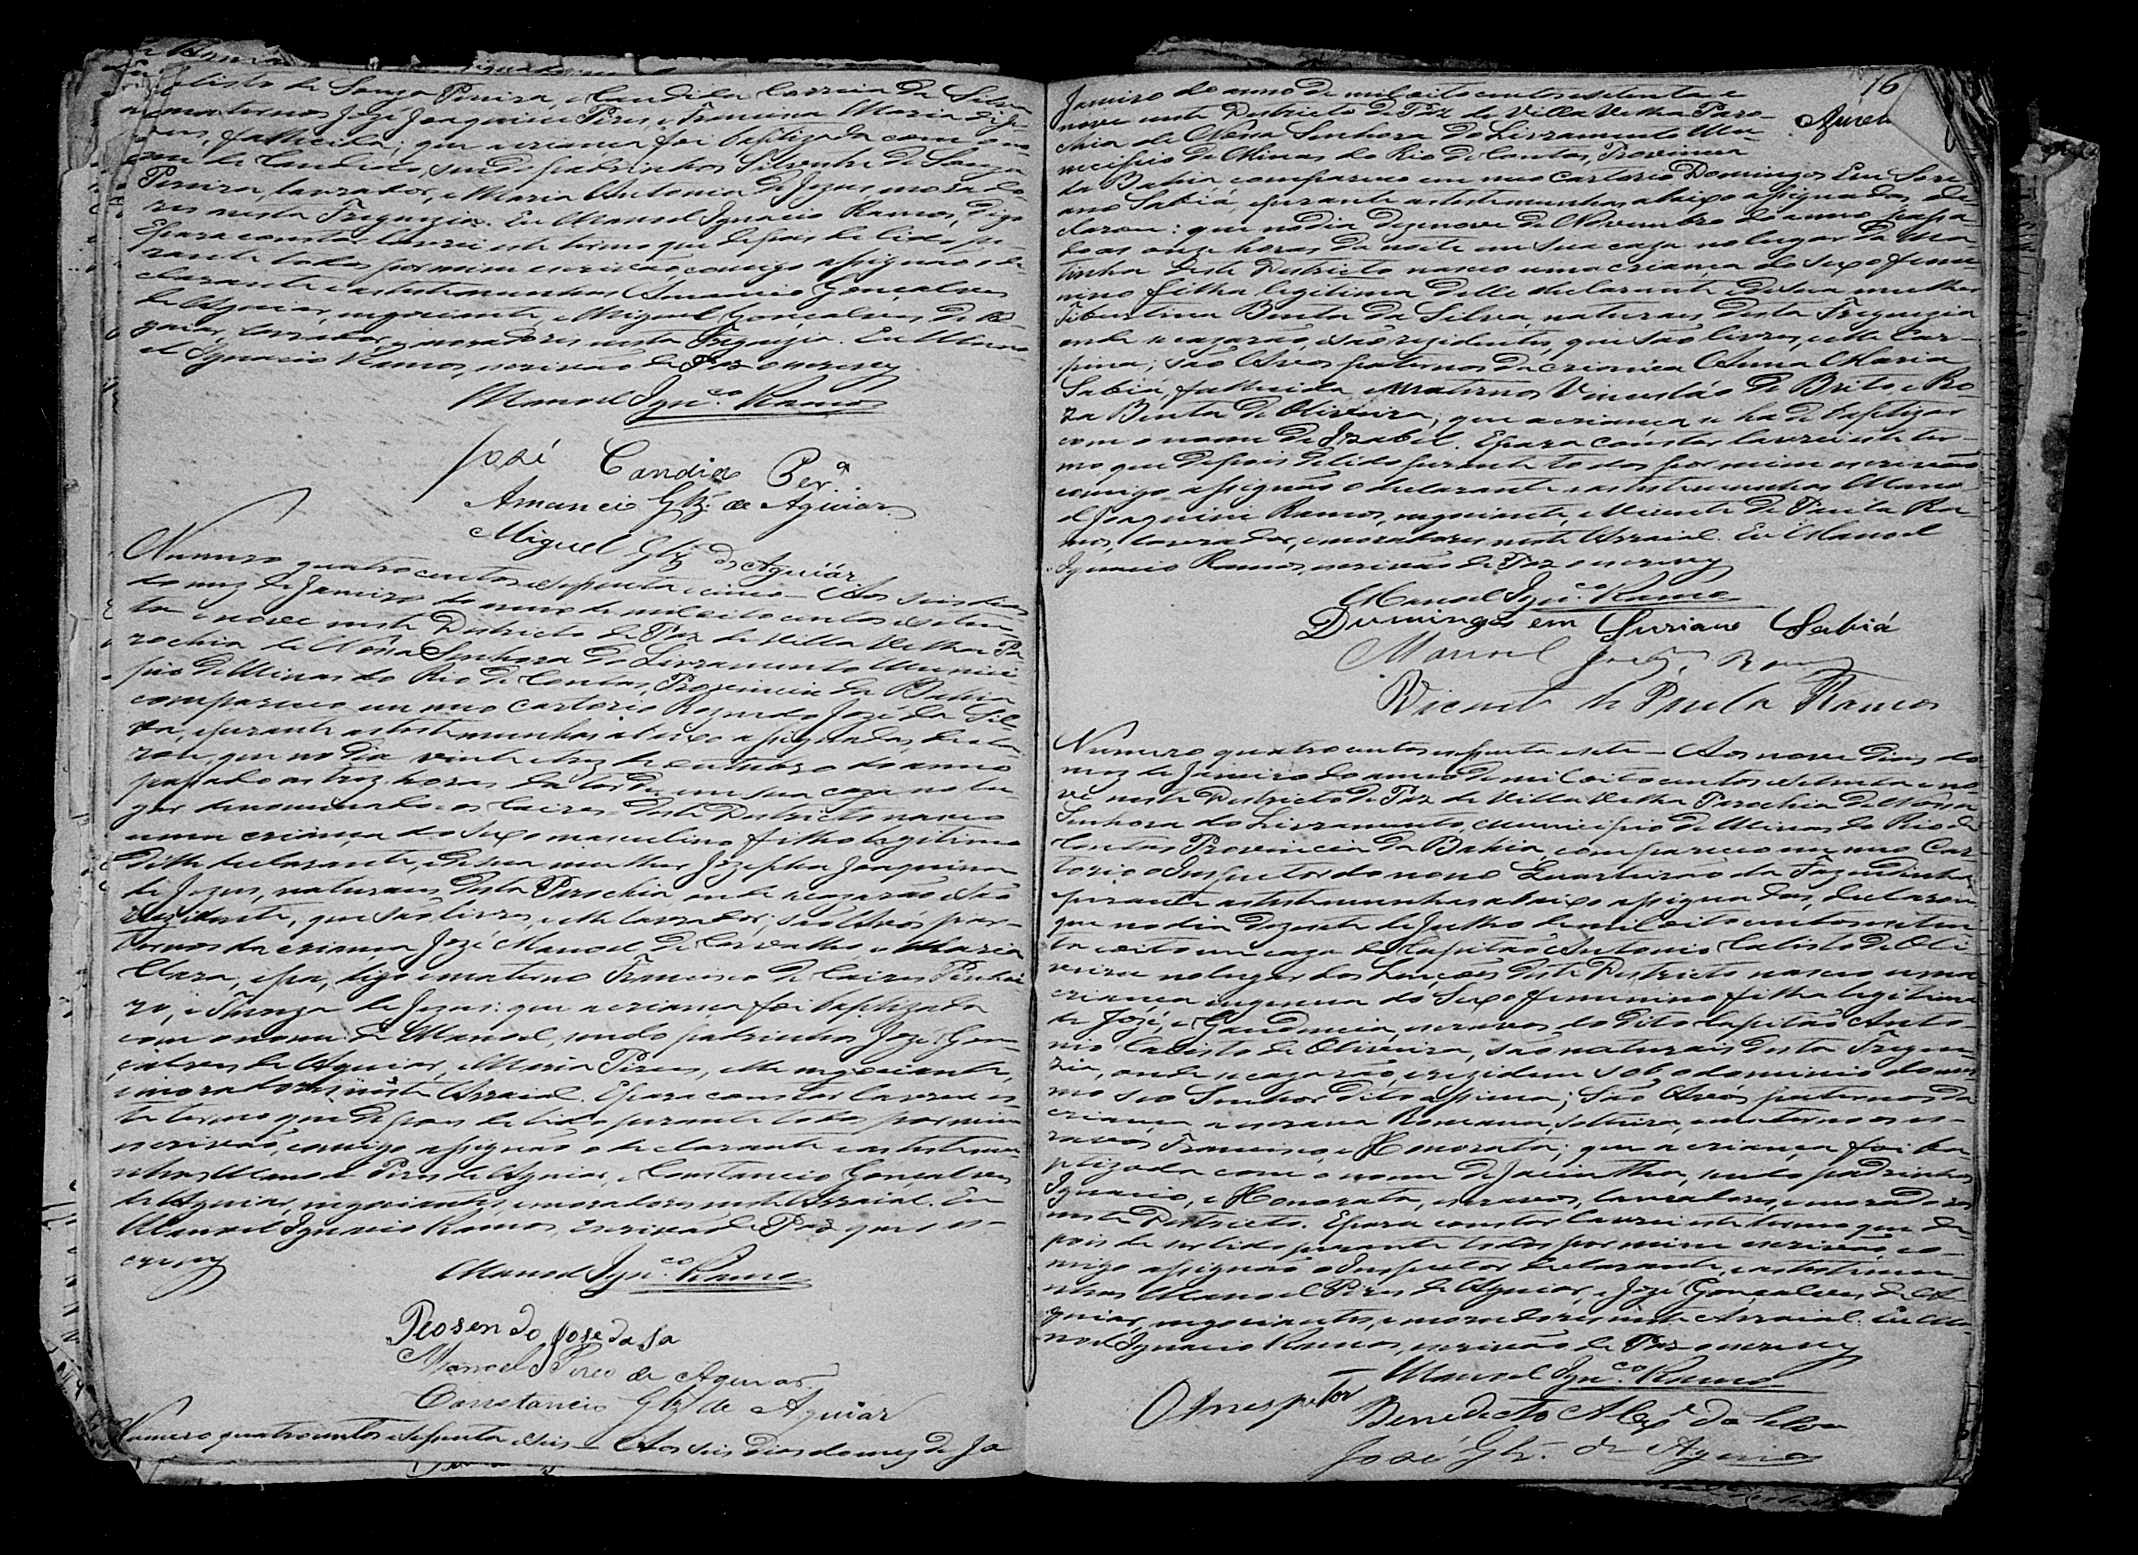 Calisto de Souza Pereira, e Candida Correia da Silva
e maternos José Joaquim Pires, e Francisca Maria de Je-
zus, fallecida; que a criança foi baptizada com o no-
me de Candido, sendo padrinhos Silvestre de Souza
Pereira, lavrador, e Maria Antonia de Jezus morado-
res nesta Freguezia. Eu Manoel Ignacio Ramos, digo
E para constar lavrei este termo que depois de lido pe-
rante todos por mim escrivão comigo assignão o de-
clarante e as testemunhas Amancio Gonçalves
de Aguiar, negociante, e Miguel Gonçalves de A-
guiar, lavrador, e moradores nesta Freguezia. Eu Mano-
el Ignacio Ramos, escrivão de Paz o escrevy
Manoel Ign.co Ramos
José Candido Per.a
Amancio Glz. de Aguiar
Miguel Glz de Aguiar
Numero quatro centos e septenta e cinco - Aos seis dias
do mez de Janeiro do anno de mil oito centos e seten-
ta e nove neste Districto de Paz de Villa Velha Pa-
rochia de Nossa Senhora do Livramento Munici-
pio de Minas do Rio de Contas, Provincia da Bahia
compareceo em meo Cartorio Rozendo José da Sil-
va, e perante as testemunhas abaixo assignadas, decla-
rou, que no dia vinte e trez de outubro do anno
passado as trez horas da tarde em sua caza no lu-
gar denominado os Caires deste Districto nasceo
uma criança do sexo masculino filho legitimo
delle declarante, e de sua mulher Jozepha Joaquina
de Jezus, naturaes desta Parochia onde se cazarão e são
rezidente, que são livres, e elle lavrador, são Avós pa-
ternos da criança José Manoel de Carvalho e Maria
Clara, e pa, digo e materno Francisco de Caires Pinhei-
ro, e de Jezus: que a criança foi baptizada
com o nome de Manoel, sendo padrinhos José Gon-
çalves de Aguiar, e Maria Pires, elle negociante,
e moradores neste Arraial. E para constar lavrei es-
te termo que depois de lido perante todos por mim
escrivão, comigo assignão o declarante e as testemu-
nhas Manoel Pires de Aguiar, e Constancio Gonçalves
de Aguiar, negociantes e moradores neste Arraial. Eu
Manoel Ignacio Ramos, escrivão de Paz que o es-
crevy
Manoel Ign.co Ramos
Rosendo Jose da Sa
Manoel Pires de Aguiar
Constancio Glz de Aguiar
Numero quatro centos e septenta e seis - Aos seis dias do mez de Ja
16
Janeiro do anno de mil oito centos e setenta e
nove neste Districto de Paz de Villa Velha Paro-
chia de Nossa Senhora do Livramento Mu-
nicipio de Minas do Rio de Contas, Provincia
da Bahia compareceo em meo Cartorio Domingos Em Suri-
ano Sabiá, e perante as testemunhas abaixo assignadas, de-
clarou: que no dia dezenove de Novembro do anno passa-
do as onze horas da noite em sua caza no lugar da Ma
tinha deste Districto nasceo uma criança do sexo femi-
nino filha legitima delle declarante e de sua mulher
Tibertina Benta da Silva, naturaes desta Freguezia
onde se cazarão, e são rezidentes, que são livres, e elle Car-
pina; são Avós paternos da criança Anna Maria
Sabiá, fallecida, e maternos Vencesláo de Brito e Ro-
za Benta de Oliveira; que a criança se ha de baptizar
com o nome de Izabel. E para constar lavrei este ter-
mo que depois de lido perante todos por mim escrivão
comigo assignão o declarante e as testemunhas Mano-
el Joaquim Ramos, negociante, e Vicente de Paula Ra-
mos, lavrador, e moradores neste Arraial. Eu Manoel
Ignacio Ramos, escrivão de Paz o escrevy
Manoel Ign.co Ramos
Dumingos em Suriano Sabiá
Manoel Ramos
Vicente de Paula Ramos
Numero quatro centos e septenta e sete - Aos nove dias do
mez de Janeiro do anno de mil oito centos e setenta e no-
ve neste Districto de Paz de Villa Velha Parochia de Nossa
Senhora do Livramento, Municipio de Minas do Rio de
Contas Provincia da Bahia, compareceo em meo Car-
torio o Inspetor do nono Quarteirão da Fazendinha,
e perante as testemunhas abaixo assignadas, declarou
que no dia dezesete de Julho de mil oito centos e seten-
ta e oito em caza do Capitão Antonio Calisto de Oli
veira no lugar dos Lençóes deste Districto nasceo uma
criança ingenua do sexo femenino filha legitima
de José, e Gaudencia, escravos do dito Capitão Anto-
nio Calisto de Oliveira, são naturais desta Fregue-
zia, onde se cazarão, e rezidem sob o dominio do mes-
mo seo Senhor dito assima; são Avós paternos da
criança a escrava Romana, solteira, e maternos os es-
cravos Francisco, e Honorata; que a criança foi ba-
ptizada com o nome de Jacintha, sendo padrinhos
Ignacio, e Honorata, escravos, lavradores, e moradores
neste Districto. E para constar lavrei este termo que de-
pois de ser lido perante todos por mim escrivão co-
migo assignão o Inspetor declarante, e as testemu-
nhas Manoel Pires de Aguiar, e José Gonçalves de A-
guiar, negociantes, e moradores neste Arraial. Eu Ma-
noel Ignacio Ramos, escrivão de Paz o escrevy
Manoel Ign.co Ramos
O Inespetor Benedicto Alex.e da Silva
José Glz. de Aguiar